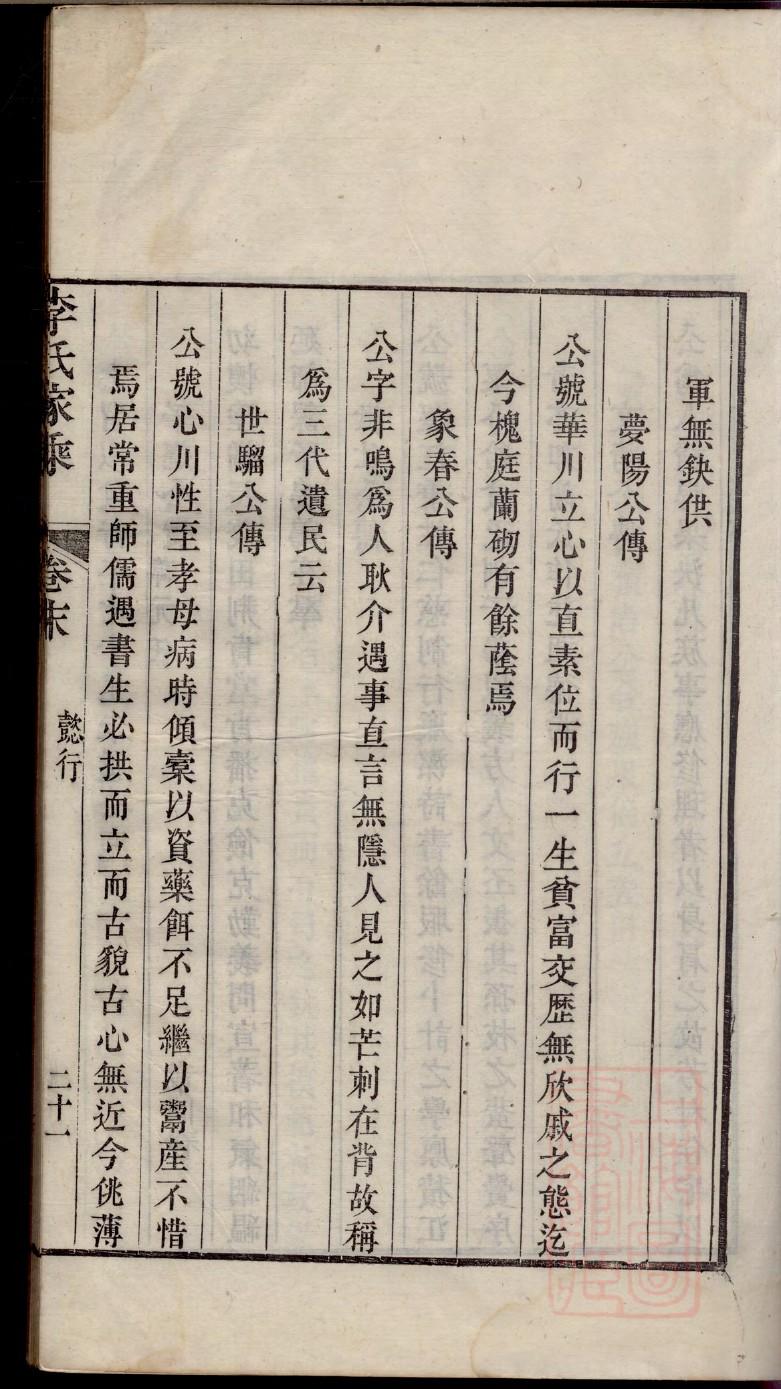 軍無鈌供
夢陽公傳
公號華川立心以直素位而行一生貧富交歷無欣戚之態迄
今槐庭蘭砌有餘蔭焉
象春公傳
公字非鳴爲人耿介遇事直言無隱人見之如芒刺在背故稱
爲三代遺民云
世騮公傳
公號心川性至孝母病時傾橐以資藥餌不足繼以鬻產不惜
焉居常重師儒遇書生必拱而立而古貌古心無近今佻薄
李氏家乘
卷末
懿行
二十一